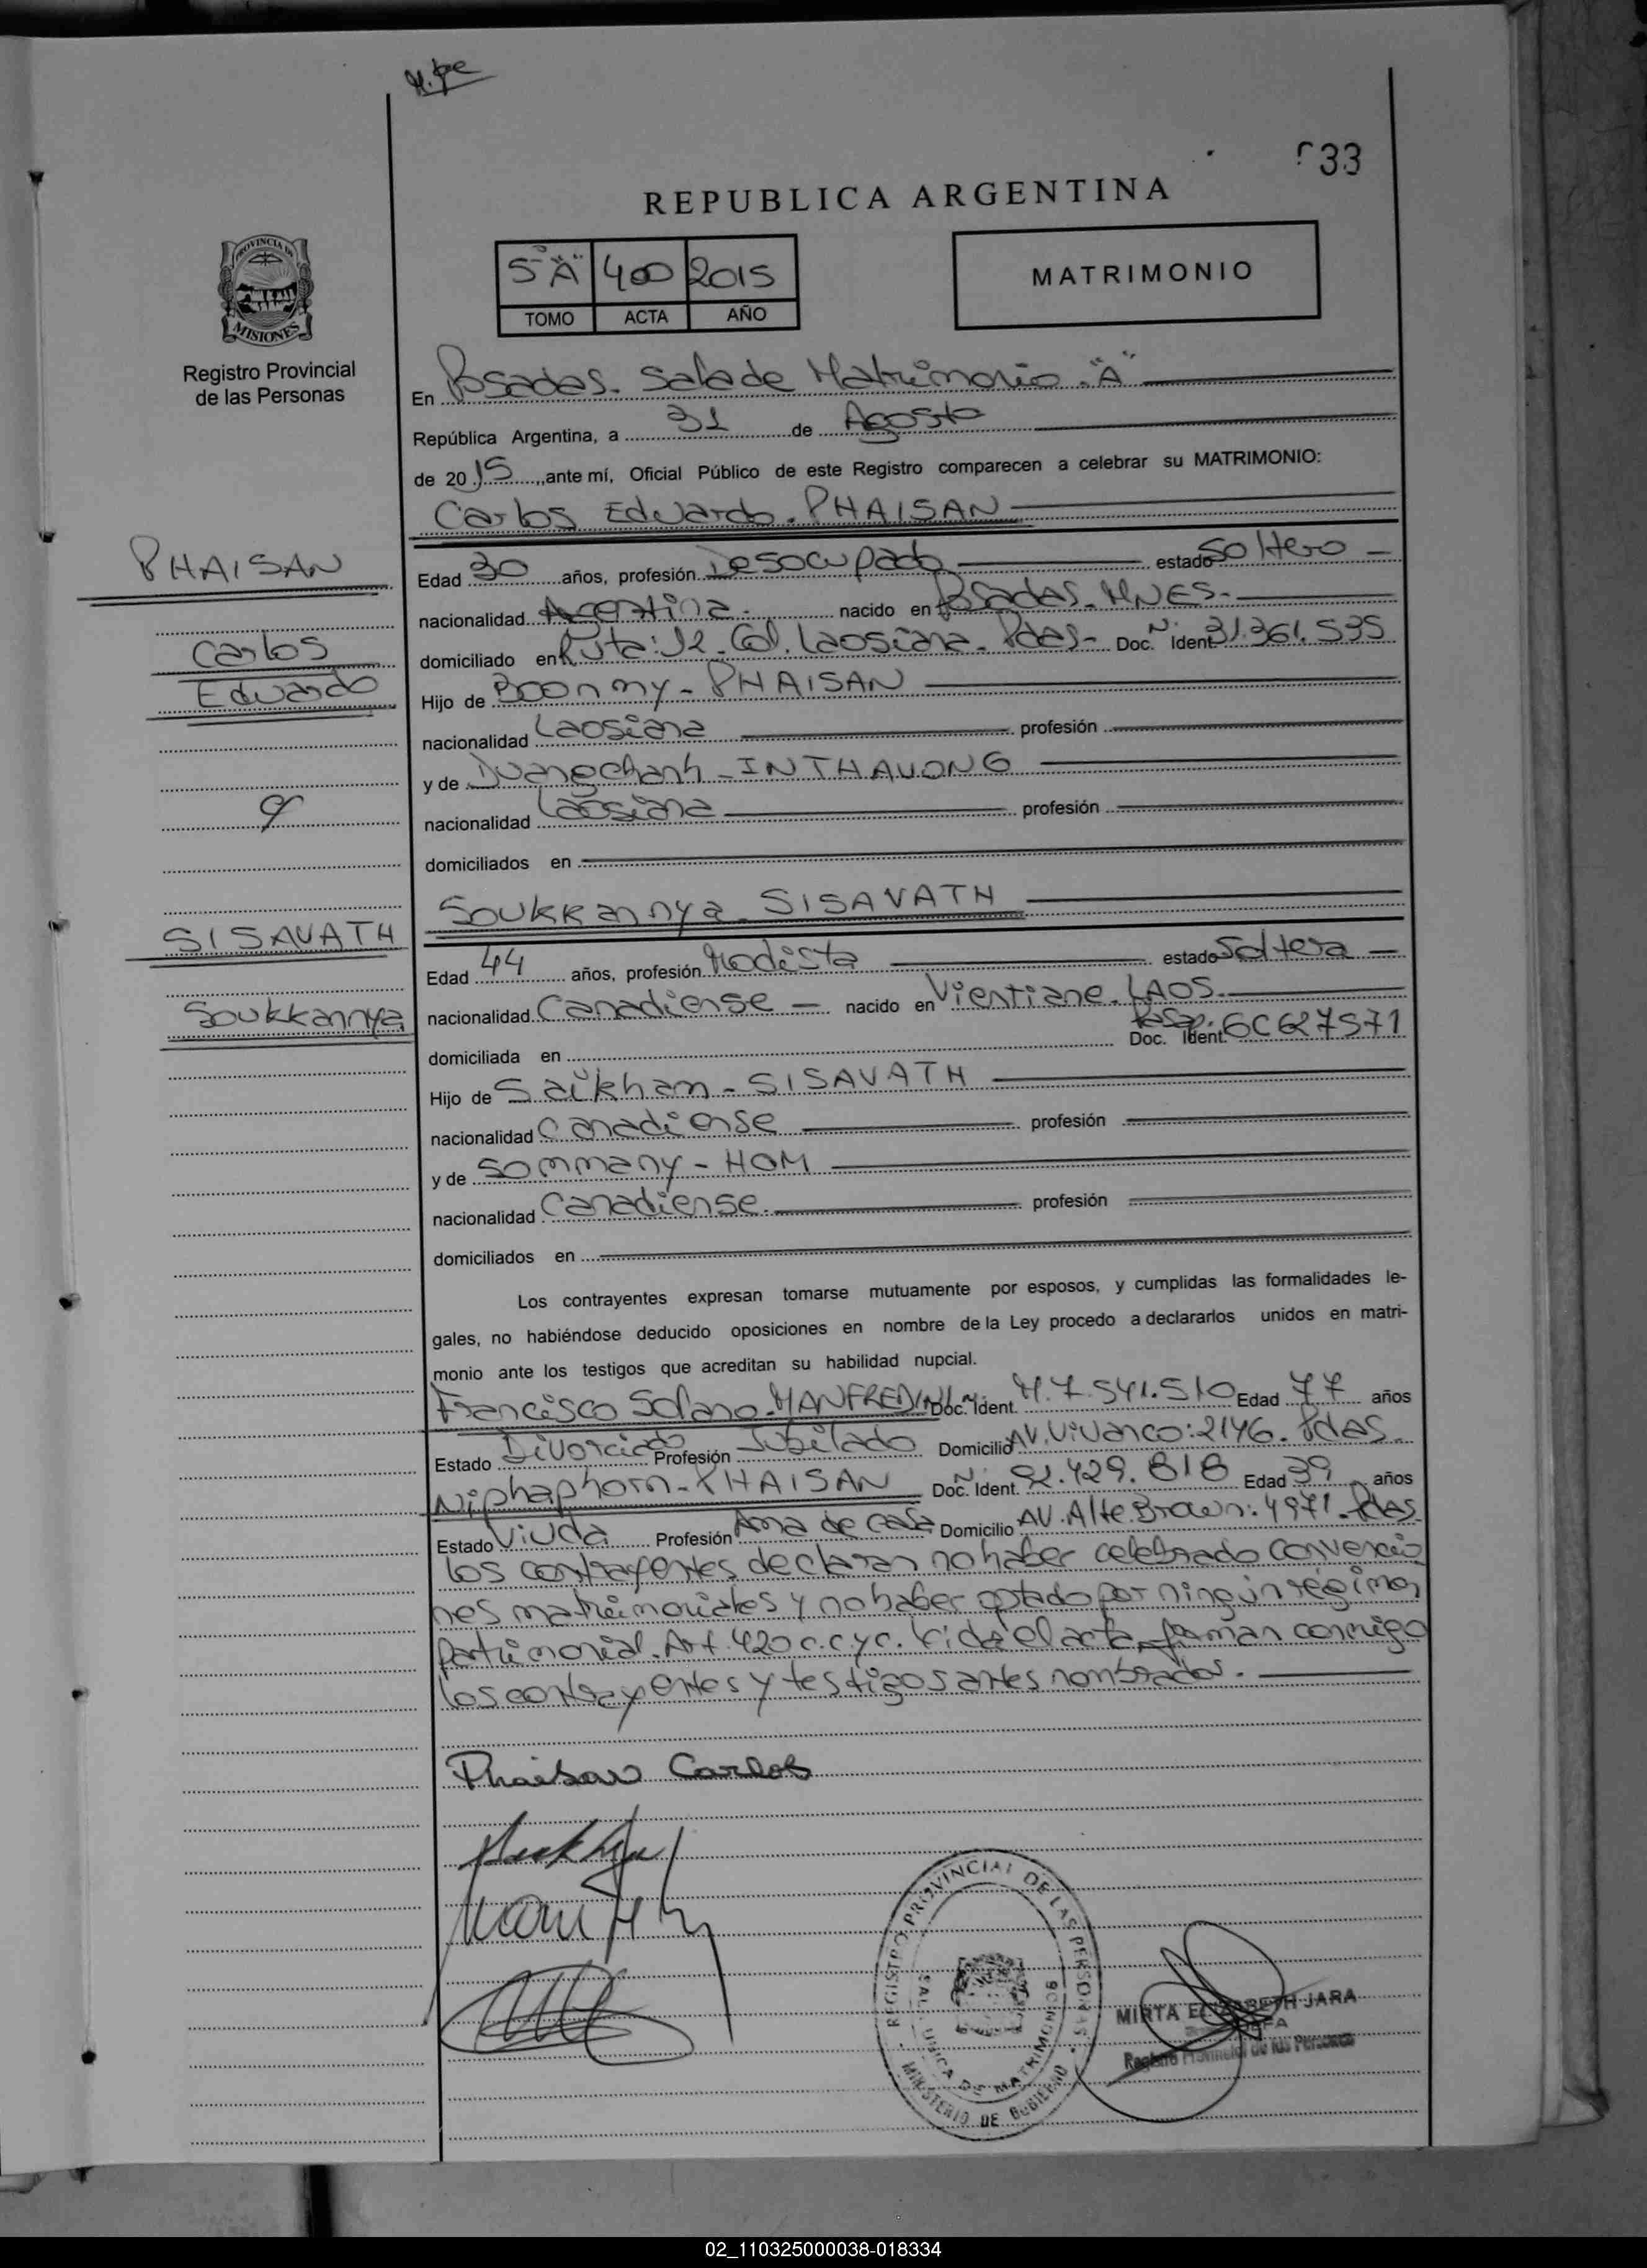 533
REPUBLICA ARGENTINA
PROVINCIA DE
MISIONES
Registro Provincial
de las Personas
5º "A" 400 2015
TOMO ACTA AÑO
MATRIMONIO
En Posadas. Sala de Matrimonio. "A"
República Argentina, a 31 de Agosto
de 2015, ante mí, Oficial Público de este Registro comparecen a celebrar su MATRIMONIO:
Carlos Eduardo. PHAISAN
PHAISAN
Carlos
Eduardo
Edad 30 años, profesión Desocupado estado Soltero
nacionalidad Argentina. nacido en Posadas. MNES.
domiciliado en Ruta: 12. Col. Laosiana. Pdas- Doc. Nº Ident. 31.361.535
Hijo de Boonmy - PHAISAN
nacionalidad Laosiana profesión
y de Duangchanh - INTHAVONG
nacionalidad Laosiana profesión
domiciliados en
Soukkannya. SISAVATH
SISAVATH
Soukkannya
Edad 44 años, profesión Modista estado Soltera
nacionalidad Canadiense nacido en Vientiane. LAOS.
domiciliada en Doc. Ident. Pasap. GC627571
Hijo de Saikham - SISAVATH
nacionalidad Canadiense profesión
y de Sommany - HOM
nacionalidad Canadiense. profesión
domiciliados en
Los contrayentes expresan tomarse mutuamente por esposos, y cumplidas las formalidades le-
gales, no habiéndose deducido oposiciones en nombre de la Ley procedo a declararlos unidos en matri-
monio ante los testigos que acreditan su habilidad nupcial.
Francisco Solano - MANFREDINI Doc. Ident. M. 7.541.510 Edad 77 años
Estado Divorciado Profesión Jubilado Domicilio AV. Vivanco: 2146. Pdas.
Niphaphorn - PHAISAN Doc. Ident. Nº 92.429.818 Edad 39 años
Estado Viuda Profesión Ama de casa Domicilio AV. Alte. Brown: 4971. Pdas.
los contrayentes declaran no haber celebrado convencio
nes matrimoniales y no haber optado por ningún régimen
patrimonial. Art. 420 c.c.y c. Leída el acta, firman conmigo
los contrayentes y testigos antes nombrados.
Phaisan Carlos
REGISTRO PROVINCIAL DE LAS PERSONAS
MINISTERIO DE GOBIERNO
SALA UNICA DE MATRIMONIOS
MIRTA ELIZABETH JARA
JEFA
Registro Provincial de las Personas
02_110325000038-018334